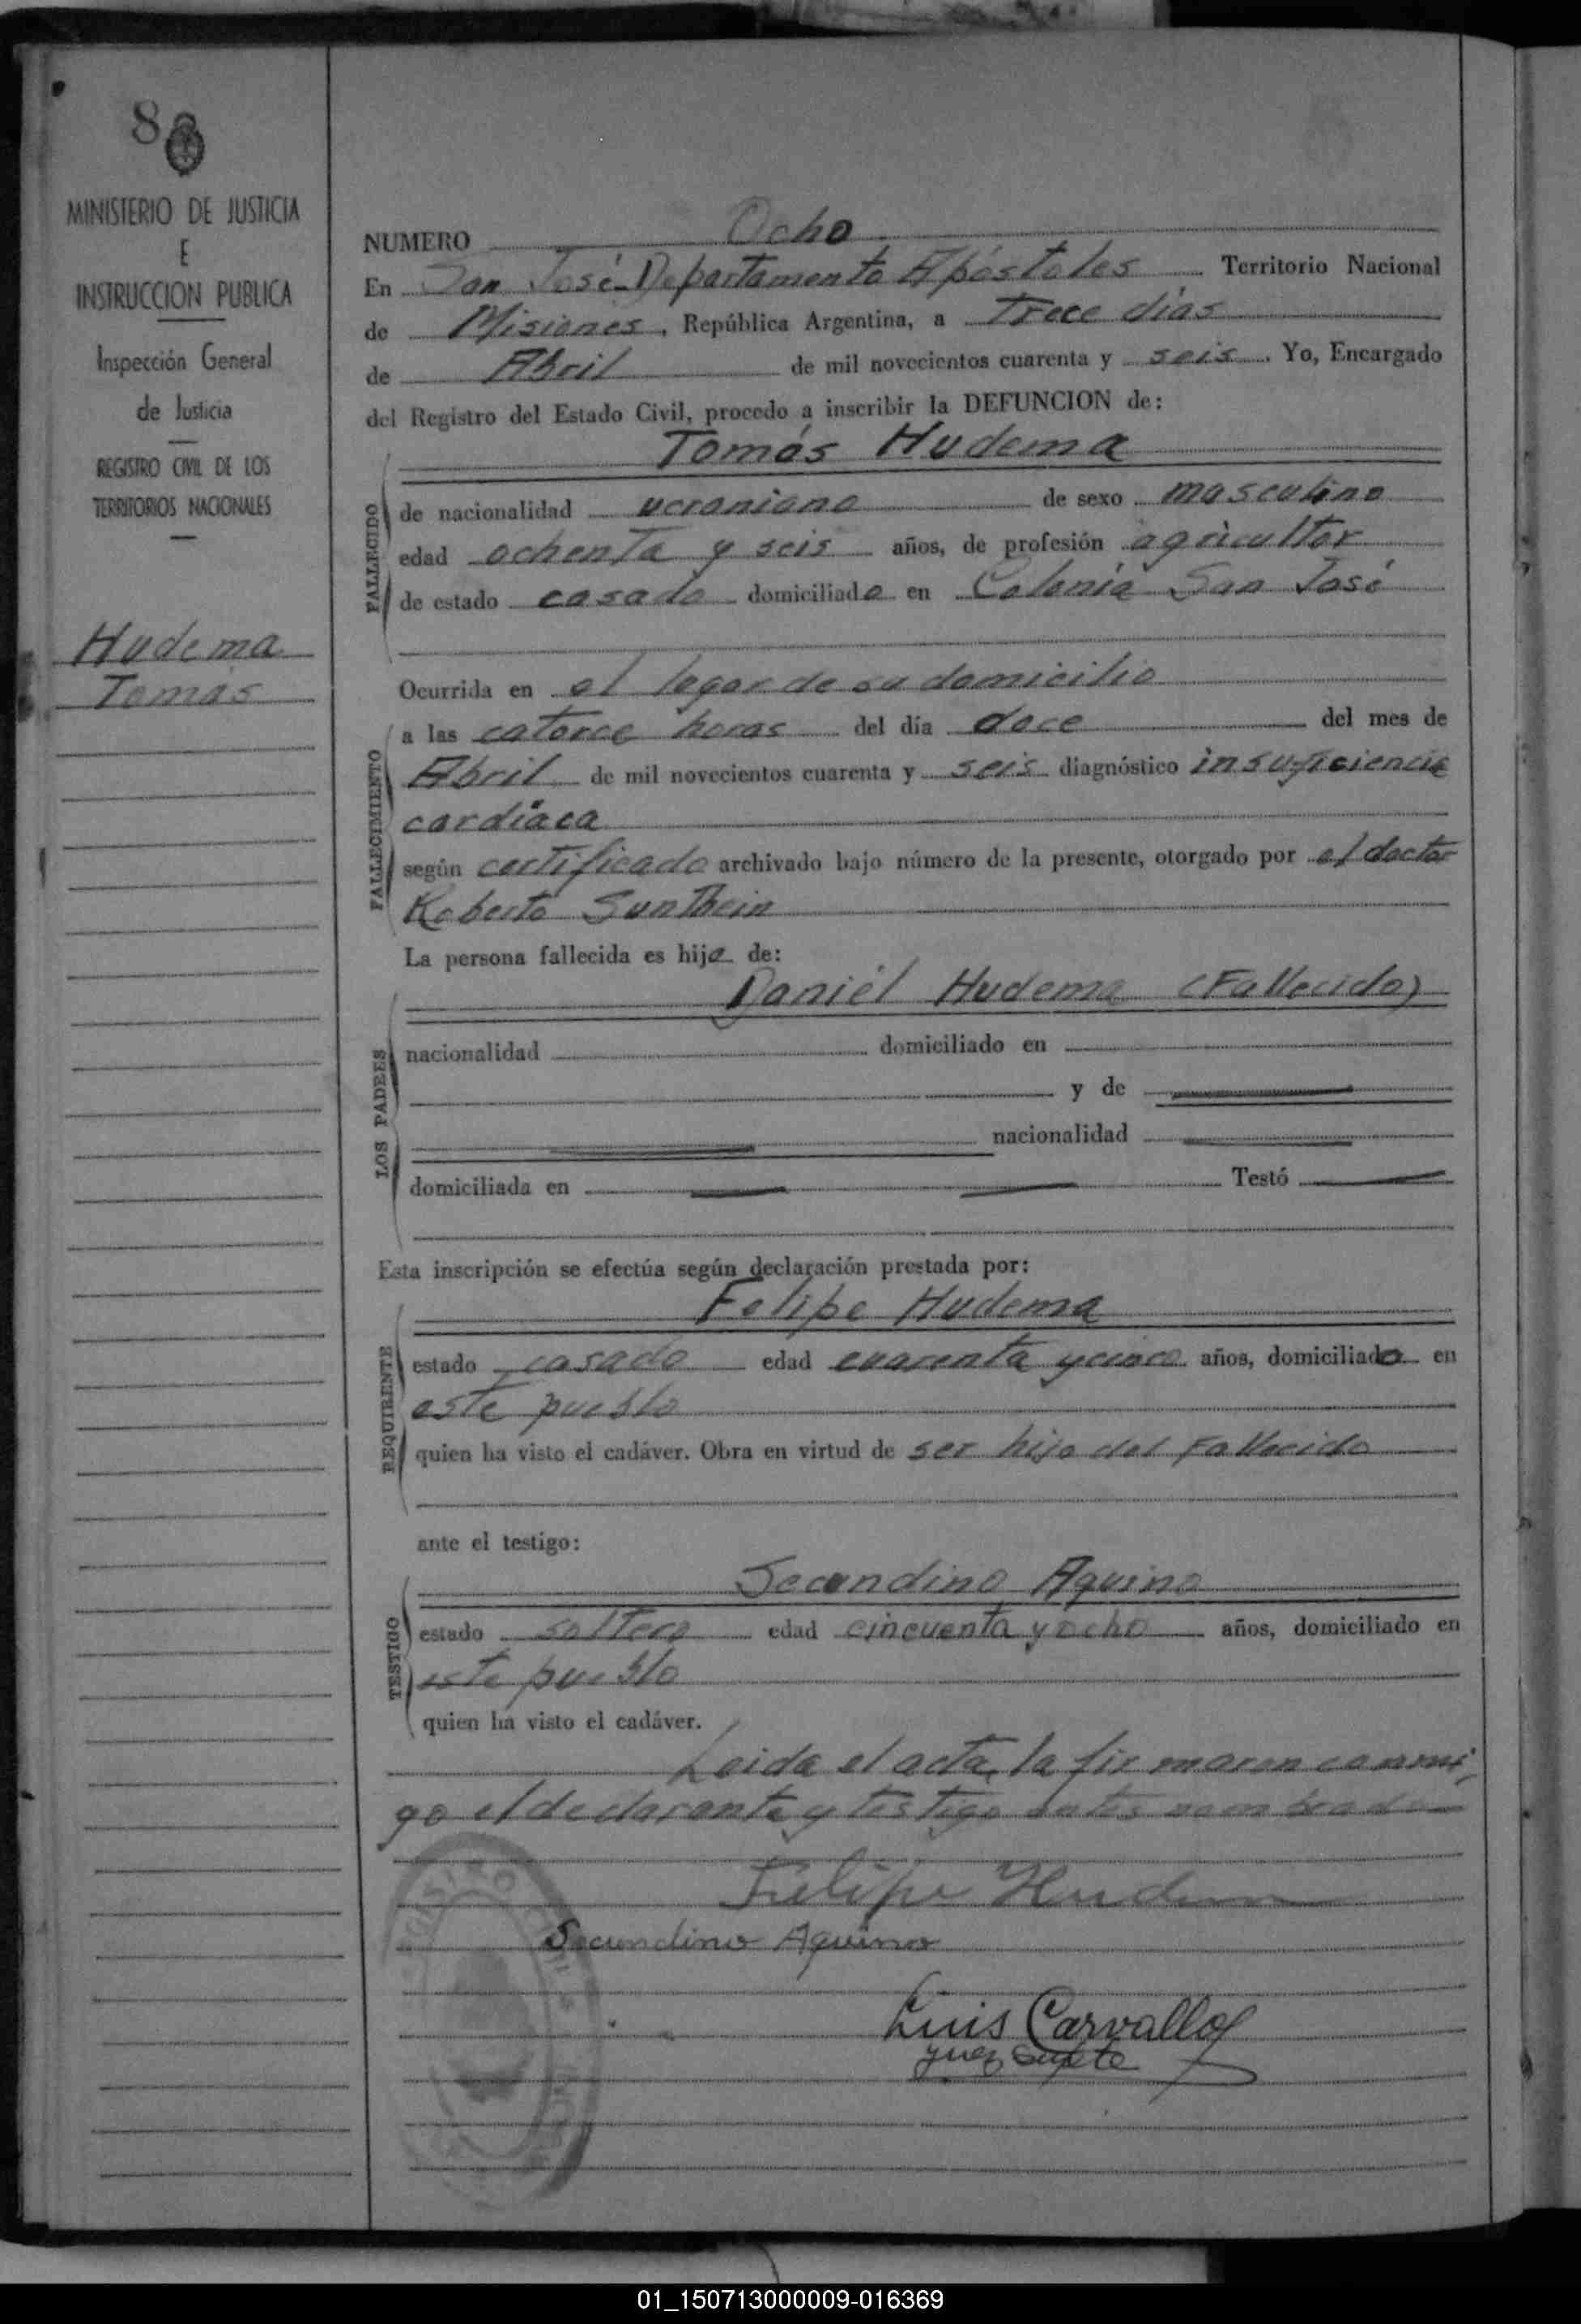 8
MINISTERIO DE JUSTICIA
E
INSTRUCCION PUBLICA
Inspección General
de Justicia
REGISTRO CIVIL DE LOS
TERRITORIOS NACIONALES
Hudema
Tomás
NUMERO Ocho
En San José-Departamento Apóstoles Territorio Nacional
de Misiones, República Argentina, a Trece días
de Abril de mil novecientos cuarenta y seis. Yo, Encargado
del Registro del Estado Civil, procedo a inscribir la DEFUNCION de:
Tomás Hudema
FALLECIDO
de nacionalidad ucraniana de sexo masculino
edad ochenta y seis años, de profesión agricultor
de estado casado domiciliado en Colonia San José
Ocurrida en el lugar de su domicilio
FALLECIMIENTO
a las catorce horas del día doce del mes de
Abril de mil novecientos cuarenta y seis diagnóstico insuficiencia
cardíaca
según certificado archivado bajo número de la presente, otorgado por el doctor
Roberto
La persona fallecida es hijo de:
LOS PADRES
Daniel Hudema (Fallecido)
nacionalidad domiciliado en
y de
nacionalidad
domiciliada en Testó
Esta inscripción se efectúa según declaración prestada por:
REQUIRENTE
Felipe Hudema
estado casado edad cuarenta y cinco años, domiciliado en
este pueblo
quien ha visto el cadáver. Obra en virtud de ser hijo del Fallecido
ante el testigo:
TESTIGO
Secundino Aquino
estado soltero edad cincuenta y ocho años, domiciliado en
este pueblo
quien ha visto el cadáver.
Leida el acta, la firmaron conmi-
go el declarante y testigo antes nombrado
Felipe Hudema
Secundino Aquino
Luis Carvallo
Juez Suplete
01_150713000009-016369